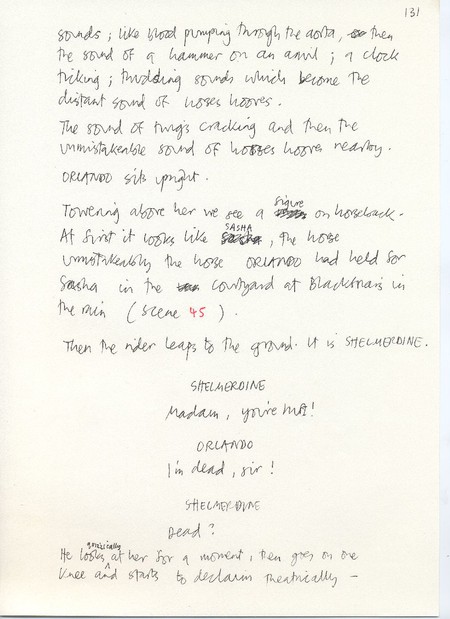 131
sounds; like blood pumping through the aorta, then
the sound of a hammer on an anvil; a clock
ticking; thudding sounds which become the
distant sound of horses hooves.
The sound of twigs cracking and then the
unmistakeable sound of horses hooves nearby.
ORLANDO sits upright.
Towering above her we see a figure on horseback.
At first it looks like SASHA, the horse
unmistakeably the horse ORLANDO had held for
Sasha in the courtyard at Blackfriars in
the rain (scene 45).
Then the rider leaps to the ground. It is SHELMERDINE.
SHELMERDINE
Madam, you're hurt!
ORLANDO
I'm dead, sir!
SHELMERDINE
Dead?
He looks quizzically at her for a moment, then goes on one
knee and starts to declaim theatrically –